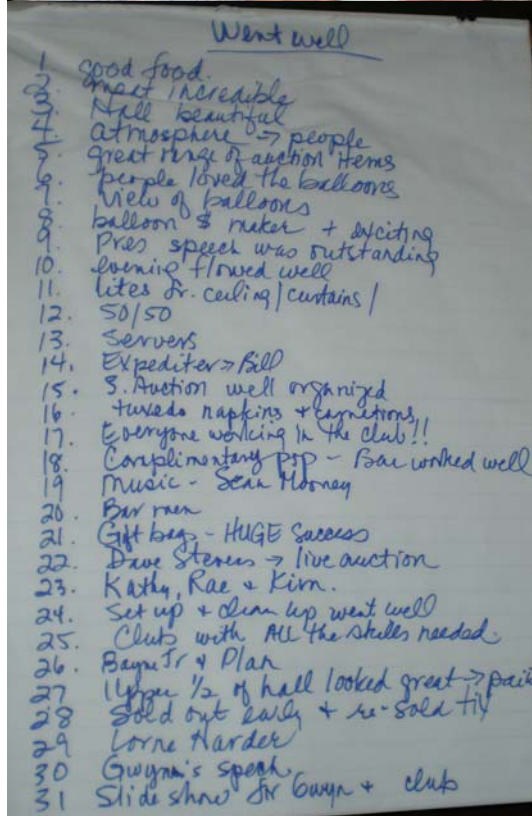 Went well
1 good food.
2. meat incredible
3. Hall beautiful
4. atmosphere → people
5. great range of auction items
6. people loved the balloons
7. View of balloons
8. balloon $ maker + exciting
9. Pres speech was outstanding
10. evening flowed well
11. lites fr. ceiling/curtains/
12. 50/50
13. Servers
14. Expediter → Bill
15. S. Auction well organized
16. tuxedo napkins + carnations
17. Everyone working in the club!!
18. Complimentary pop - Bar worked well
19 Music - Sean Mooney
20. Bar men
21. Gift bags - HUGE Success
22. Dave Stevens → live auction
23. Kathy, Rae + Kim.
24. Set up + clean up went well
25. Club with ALL the skills needed.
26. Bayne Jr + Plan
27 Upper 1/2 of hall looked great →
28 Sold out early + re-sold tix
29 Lorne Harder
30 Gwynn's speech
31 Slide show for Gwyn + club